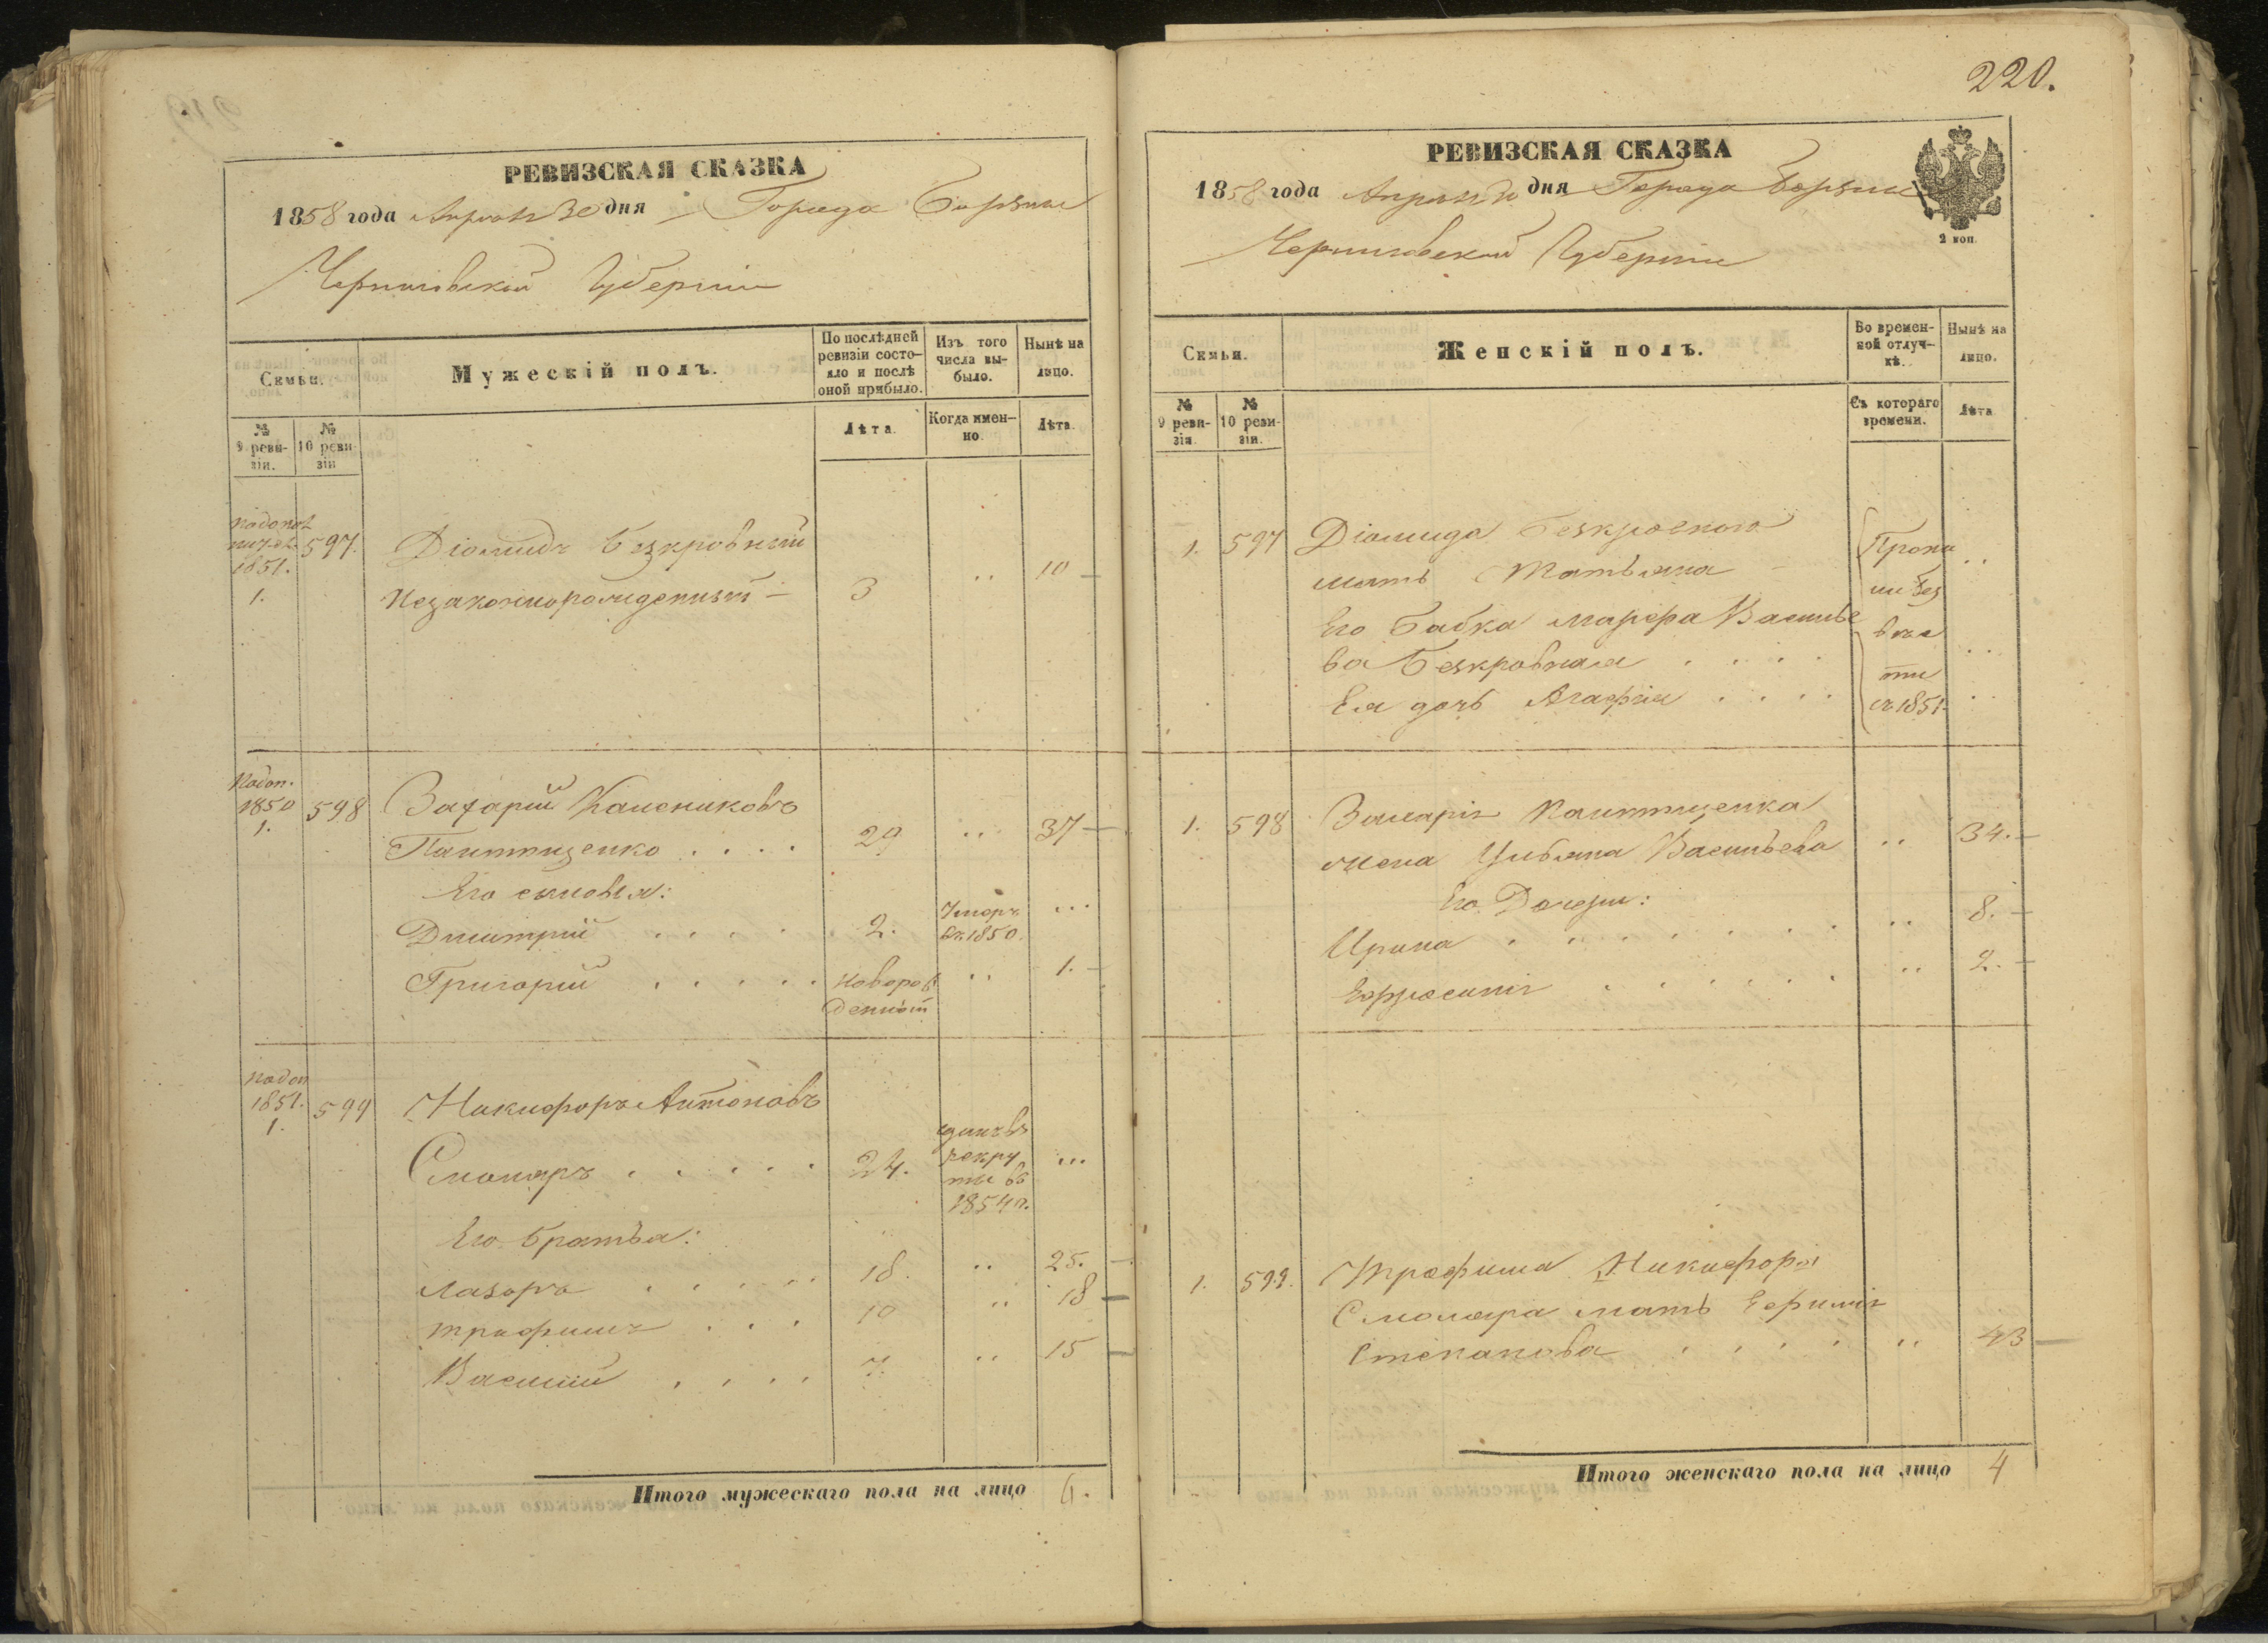 220.
РЕВИЗСКАЯ СКАЗКА
1858 года Апреля 30 дня Города Борзны
Черниговской Губерніи
Семьи.
Мужескій полъ.
По послѣдней ревизіи состо-
яло и послѣ
оной прибыло.
Изъ того
числа вы-
было.
Нынѣ на
лицо.
№
9 реви-
зіи.
№
10 реви-
зіи
Лѣта.
Когда имен-
но.
Лѣта.
1851.
1.
597.
Діомидъ Безкровный
Незаконнорожденный
3
10
По доп.
1850
1.
598
Захарій
29
37
Его сыновья:
Дмитрій
2.
Умеръ
въ 1850.
Григорій
Новорож
денный
1.
По доп
1851.
1.
599
Никифоръ Антоновъ
Смоляръ
24.
въ
рекру
ты въ
1854 г.
Его братья:
Лазарь
18.
25.
Трофимъ
10
18
Василій
7.
15
Итого мужескаго пола на лицо 6.
РЕВИЗСКАЯ СКАЗКА
1858 года Апреля 30 дня Города Борзны
Черниговской Губерніи
2 коп.
Семьи.
Женскій полъ.
Во времен-
ной отлуч-
кѣ.
Нынѣ на
лицо.
№
9 реви-
зіи
№
10 реви-
зіи.
Съ котораго
времени.
Лѣта
1.
597
Діомида Безкровного
мать Татьяна
Его бабка Марфа Василье
ва Безкровная
Ея дочь Агафія
безвѣс
ти
съ 1851.
1.
598
жена Ульяна Васильева
34.
Его Дочери:
Ирина
8.
Ефросинія
2.
1.
599.
Трофима Никифора
Смоляра мать Ефимія
Степанова
43
Итого женскаго пола на лицо 4